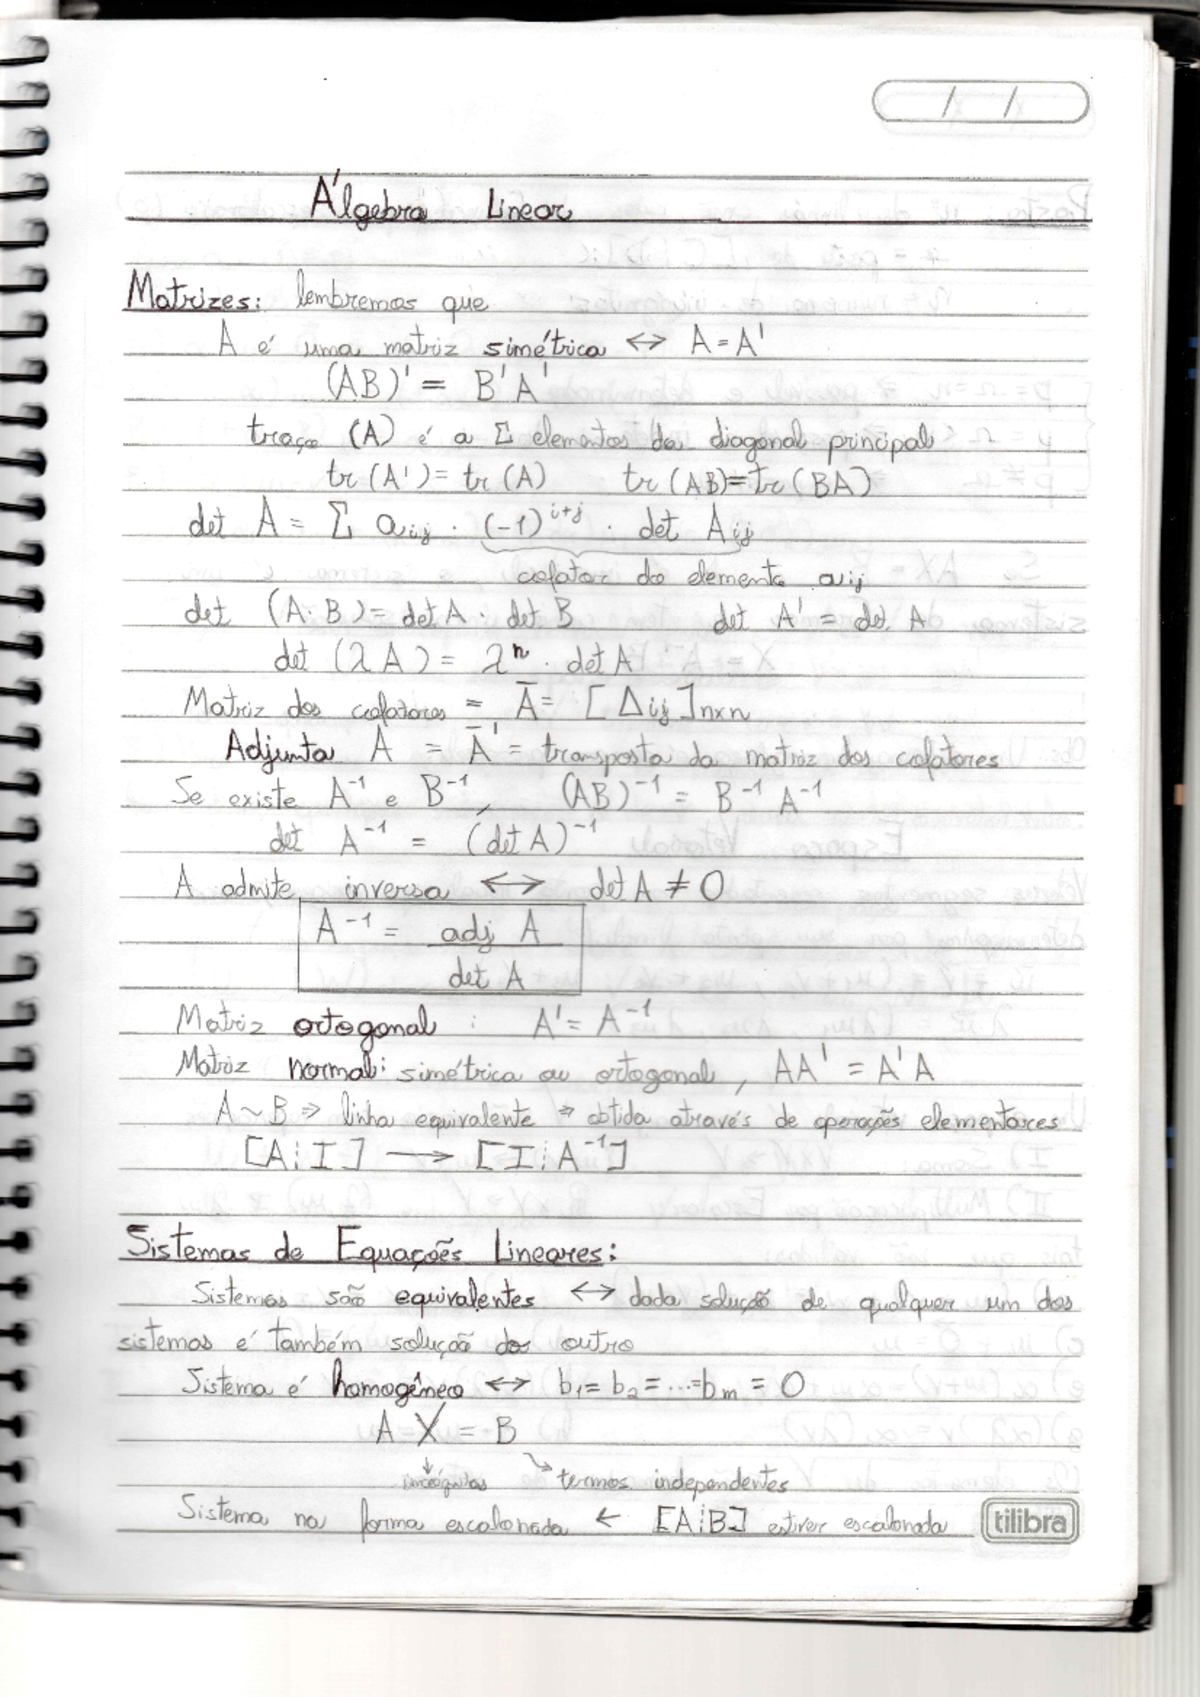 / /
Álgebra Linear
Matrizes: lembremos que
A é uma matriz simétrica ↔ A = A'
(AB)' = B'A'
traço (A) é a Σ elementos da diagonal principal
tr (A') = tr (A) tr (AB) = tr (BA)
det A = Σ aij · (-1)^i+j · det Aij
cofator do elemento aij
det (A·B) = det A · det B det A' = det A
det (λA) = λ^n · det A
Matriz dos cofatores = Ā = [Δij]nxn
Adjunta A = Ā' = transposta da matriz dos cofatores
Se existe A⁻¹ e B⁻¹, (AB)⁻¹ = B⁻¹ A⁻¹
det A⁻¹ = (det A)⁻¹
A admite inversa ↔ det A ≠ 0
A⁻¹ = adj A
det A
Matriz ortogonal : A' = A⁻¹
Matriz normal: simétrica ou ortogonal, AA' = A'A
A ~ B ⇒ linha equivalente ⇒ obtida através de operações elementares
[A¦I] → [I¦A⁻¹]
Sistemas de Equações Lineares:
Sistemas são equivalentes ↔ dada solução de qualquer um dos
sistemas é também solução dos outro
Sistema é homogêneo ↔ b₁ = b₂ = ... = bm = 0
A X = B
↓ incógnitas ↘ termos independentes
Sistema na forma escalonada ← [A¦B] estiver escalonada
tilibra